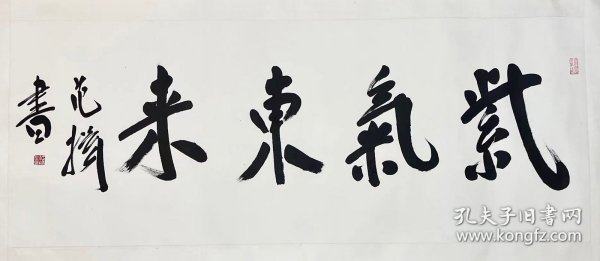 紫氣東来
范擠
書
孔夫子旧书网
www.kongfz.com